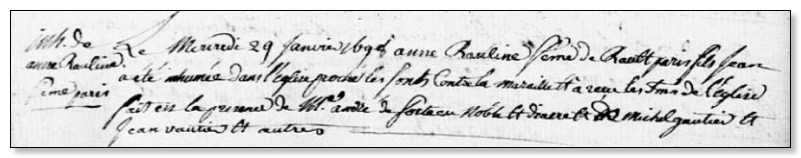 inh. de Le Mercredi 29 Janvie 1698 anne Rauline féme de Rault paris fils Jean
anne Rauline a été inhumée dans l'eglise proche les fonts Contre la muraille Et a receu les Smts de l'eglise
féme paris fait en la presence de Mes andre de Noble Et diacre Et Michel gautier Et
Jean vautier Et autres